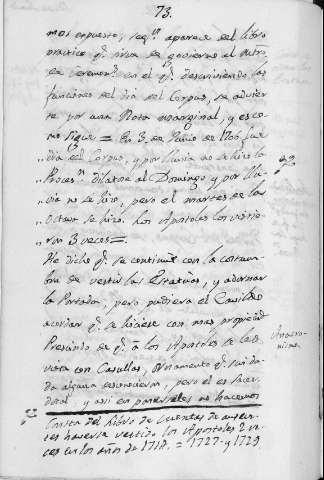 73.
mos expuesto, seg.n aparece del libro
practico q.e sirve de govierno al Mtro
de Cerem.s en el q.e describiendo las
funciones del dia del Corpus, se advier-
te por una Nota marginal, y es co-
mo sigue = En 3 de Junio de 1706 fue
"dia del Corpus, y por lluvia no se hizo la
"Proces.n dilatose al Domingo y por llu-
"via no se hizo, pero el martes de la
"Octava se hizo. Los Apostoles los vistie-
"ron 3 veces =
He dicho q.e se continuó con la costum-
bre de vestir las Estatuas, y adornar
la Portada, pero pudiera el Cavildo
acordar q.e se hiciese con mas propiedad
Prescindo de q.e à los Apostoles se les
vista con Casullas, Ornamento q.e sin du-
da alguna desconocieron, pero el es sacer-
dotal, y asi en ponerseles no hacemos
Anacro-
nismo
Consta del Libro de Cuentas de
haverse vestido los Apostoles 2 ve-
ces en los años de 1718 = 1727 y 1729